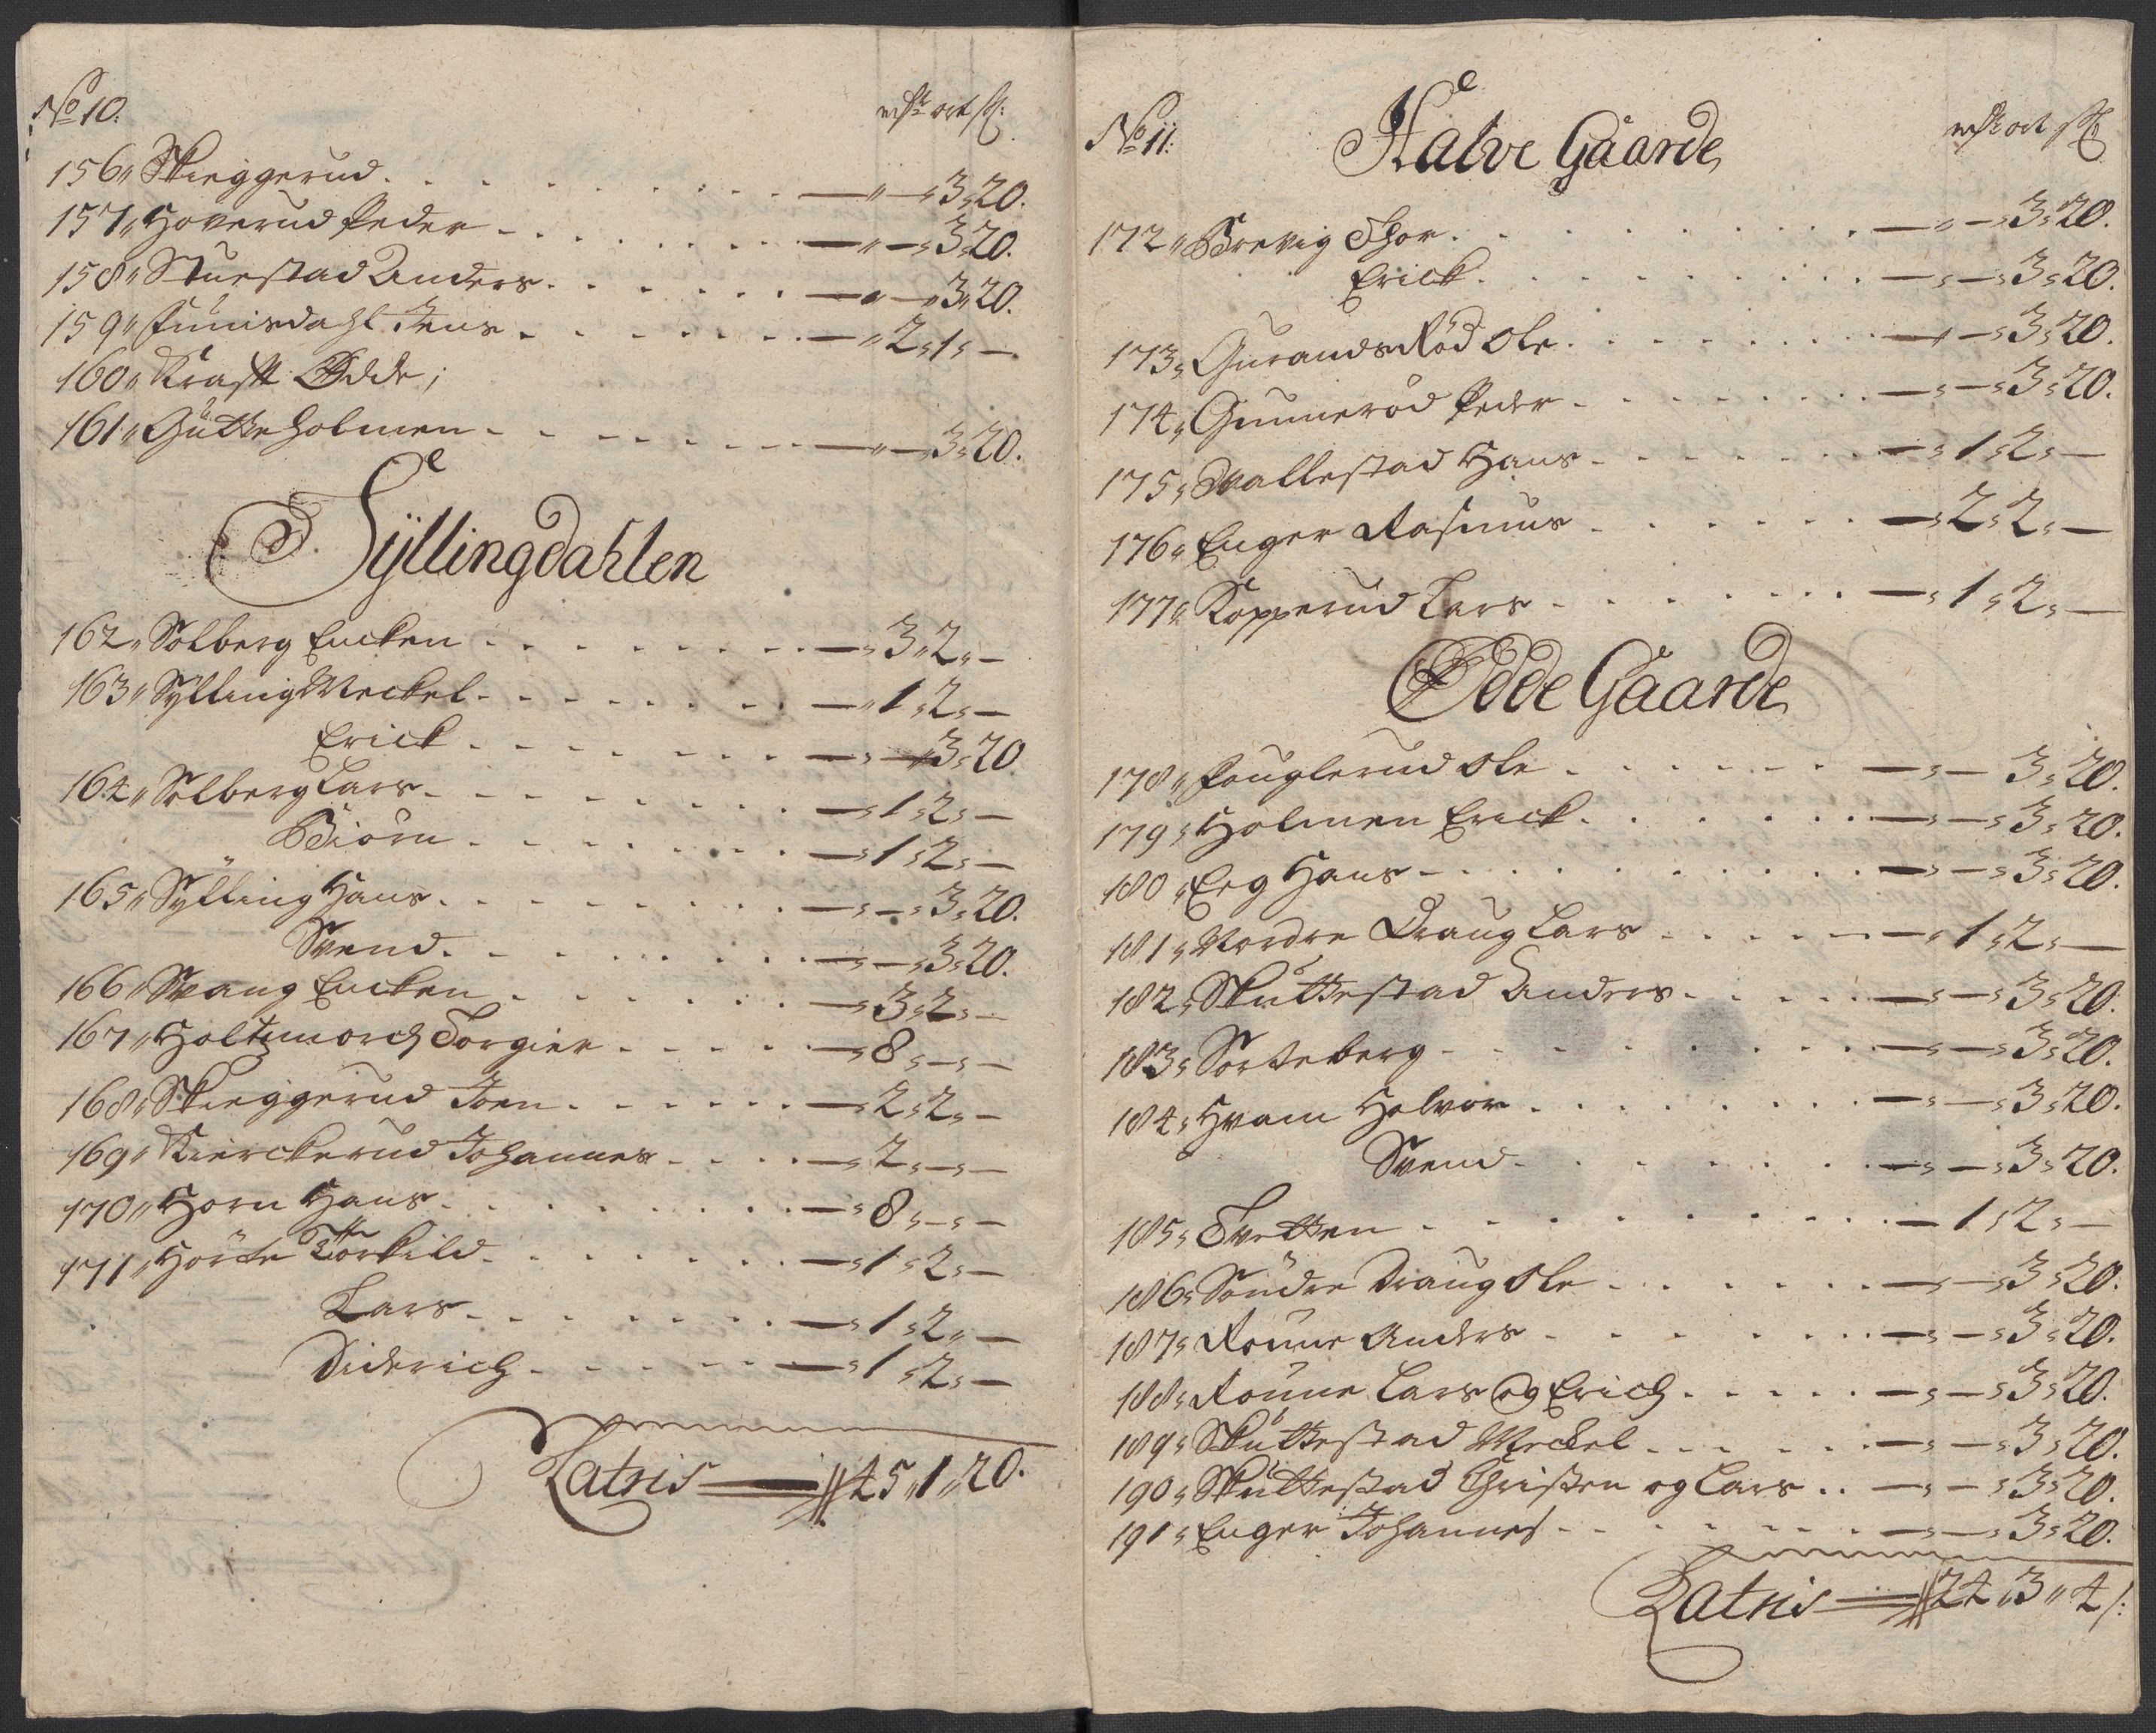 No 10.
ort ß:
156„ Skieggerud . . . . — „ — „ 3 „ 20.
157„ Hoverud Peder — „ — „ 3 „ 20.
158„ Stuestad Anders . . . — „ — „ 3 „ 20.
159„ Jens . . . — „ 2 „ 1 „ —
160„ Krafft Ødde ;
161„ Gütteholmen . . . — „ — „ 3 „ 20.
Syllingdahlen
162„ Solberg Encken . . . — „ 3 „ 2 „ —
163„ Sylling Meckel . . . — „ 1 „ 2 „ —
Erick . . . — „ — „ 3 „ 20
164„ Solberg Lars . . . — „ 1 „ 2 „ —
Biörn . . . — „ 1 „ 2 „ —
165„ Sylling Hans . . . — „ — „ 3 „ 20.
Svend . . . — „ — „ 3 „ 20.
166„ Svang Encken . . . — „ 3 „ 2 „ —
167„ Holtzmorch Torgier . . . — „ 8 „ — „ —
168„ Skieggerud Joen . . . — „ 2 „ 2 „ —
169„ Kierckerud Johannes . . . — „ 2 „ — „ —
170„ Horn Hans . . . — „ 8 „ — „ —
171„ Hörte Torkild . . . — „ 1 „ 2 „ —
Lars . . . — „ 1 „ 2 „ —
Diderich . . . — „ 1 „ 2 „ —
Latris — 45 „ 1 „ 20.
No 11:
Halve Gaarde
ort ß
172„ Brevig Thor . . . — „ — „ 3 „ 20.
Erick . . . — „ — „ 3 „ 20.
173„ Gurandsröd Ole . . . — „ — „ 3 „ 20.
174„ Gunneröd Peder . . . — „ — „ 3 „ 20.
175„ Vallestad Hans . . . — „ 1 „ 2 „ —
176„ Enger Rasmus . . . — „ 2 „ 2 „ —
177„ Kopperud Lars . . . — „ 1 „ 2 „ —
Ødde Gaarde
178„ Fouglerud Ole . . . — „ — 3 „ 20.
179„ Holmen Erick . . . — „ — „ 3 „ 20.
180„ Eeg Hans . . . — „ — „ 3 „ 20.
181„ Nordre Draug Lars . . . — „ 1 „ 2 „ —
182„ Sküttestad Anders . . . — „ — „ 3 „ 20.
183„ Sorteberg . . . — „ — „ 3 „ 20.
184„ Hvam Halvor . . . — „ — „ 3 „ 20.
Svend . . . — „ — „ 3 „ 20.
185„ Tvetten . . . — 1 „ 2 „ —
186„ Søndre Draug Ole . . . — „ — „ 3 „ 20.
187„ Rönne Anders . . . — „ — „ 3 „ 20.
188„ Rönne Lars og Erich . . . — „ — „ 3 „ 20.
189„ Sküttestad Meckel . . . — „ — „ 3 „ 20.
190„ Sküttestad Christen og Lars . . — „ — „ 3 „ 20.
191„ Enger Johannes . . . — „ — „ 3 „ 20.
Latris — 24 „ 3 „ 4 ß: